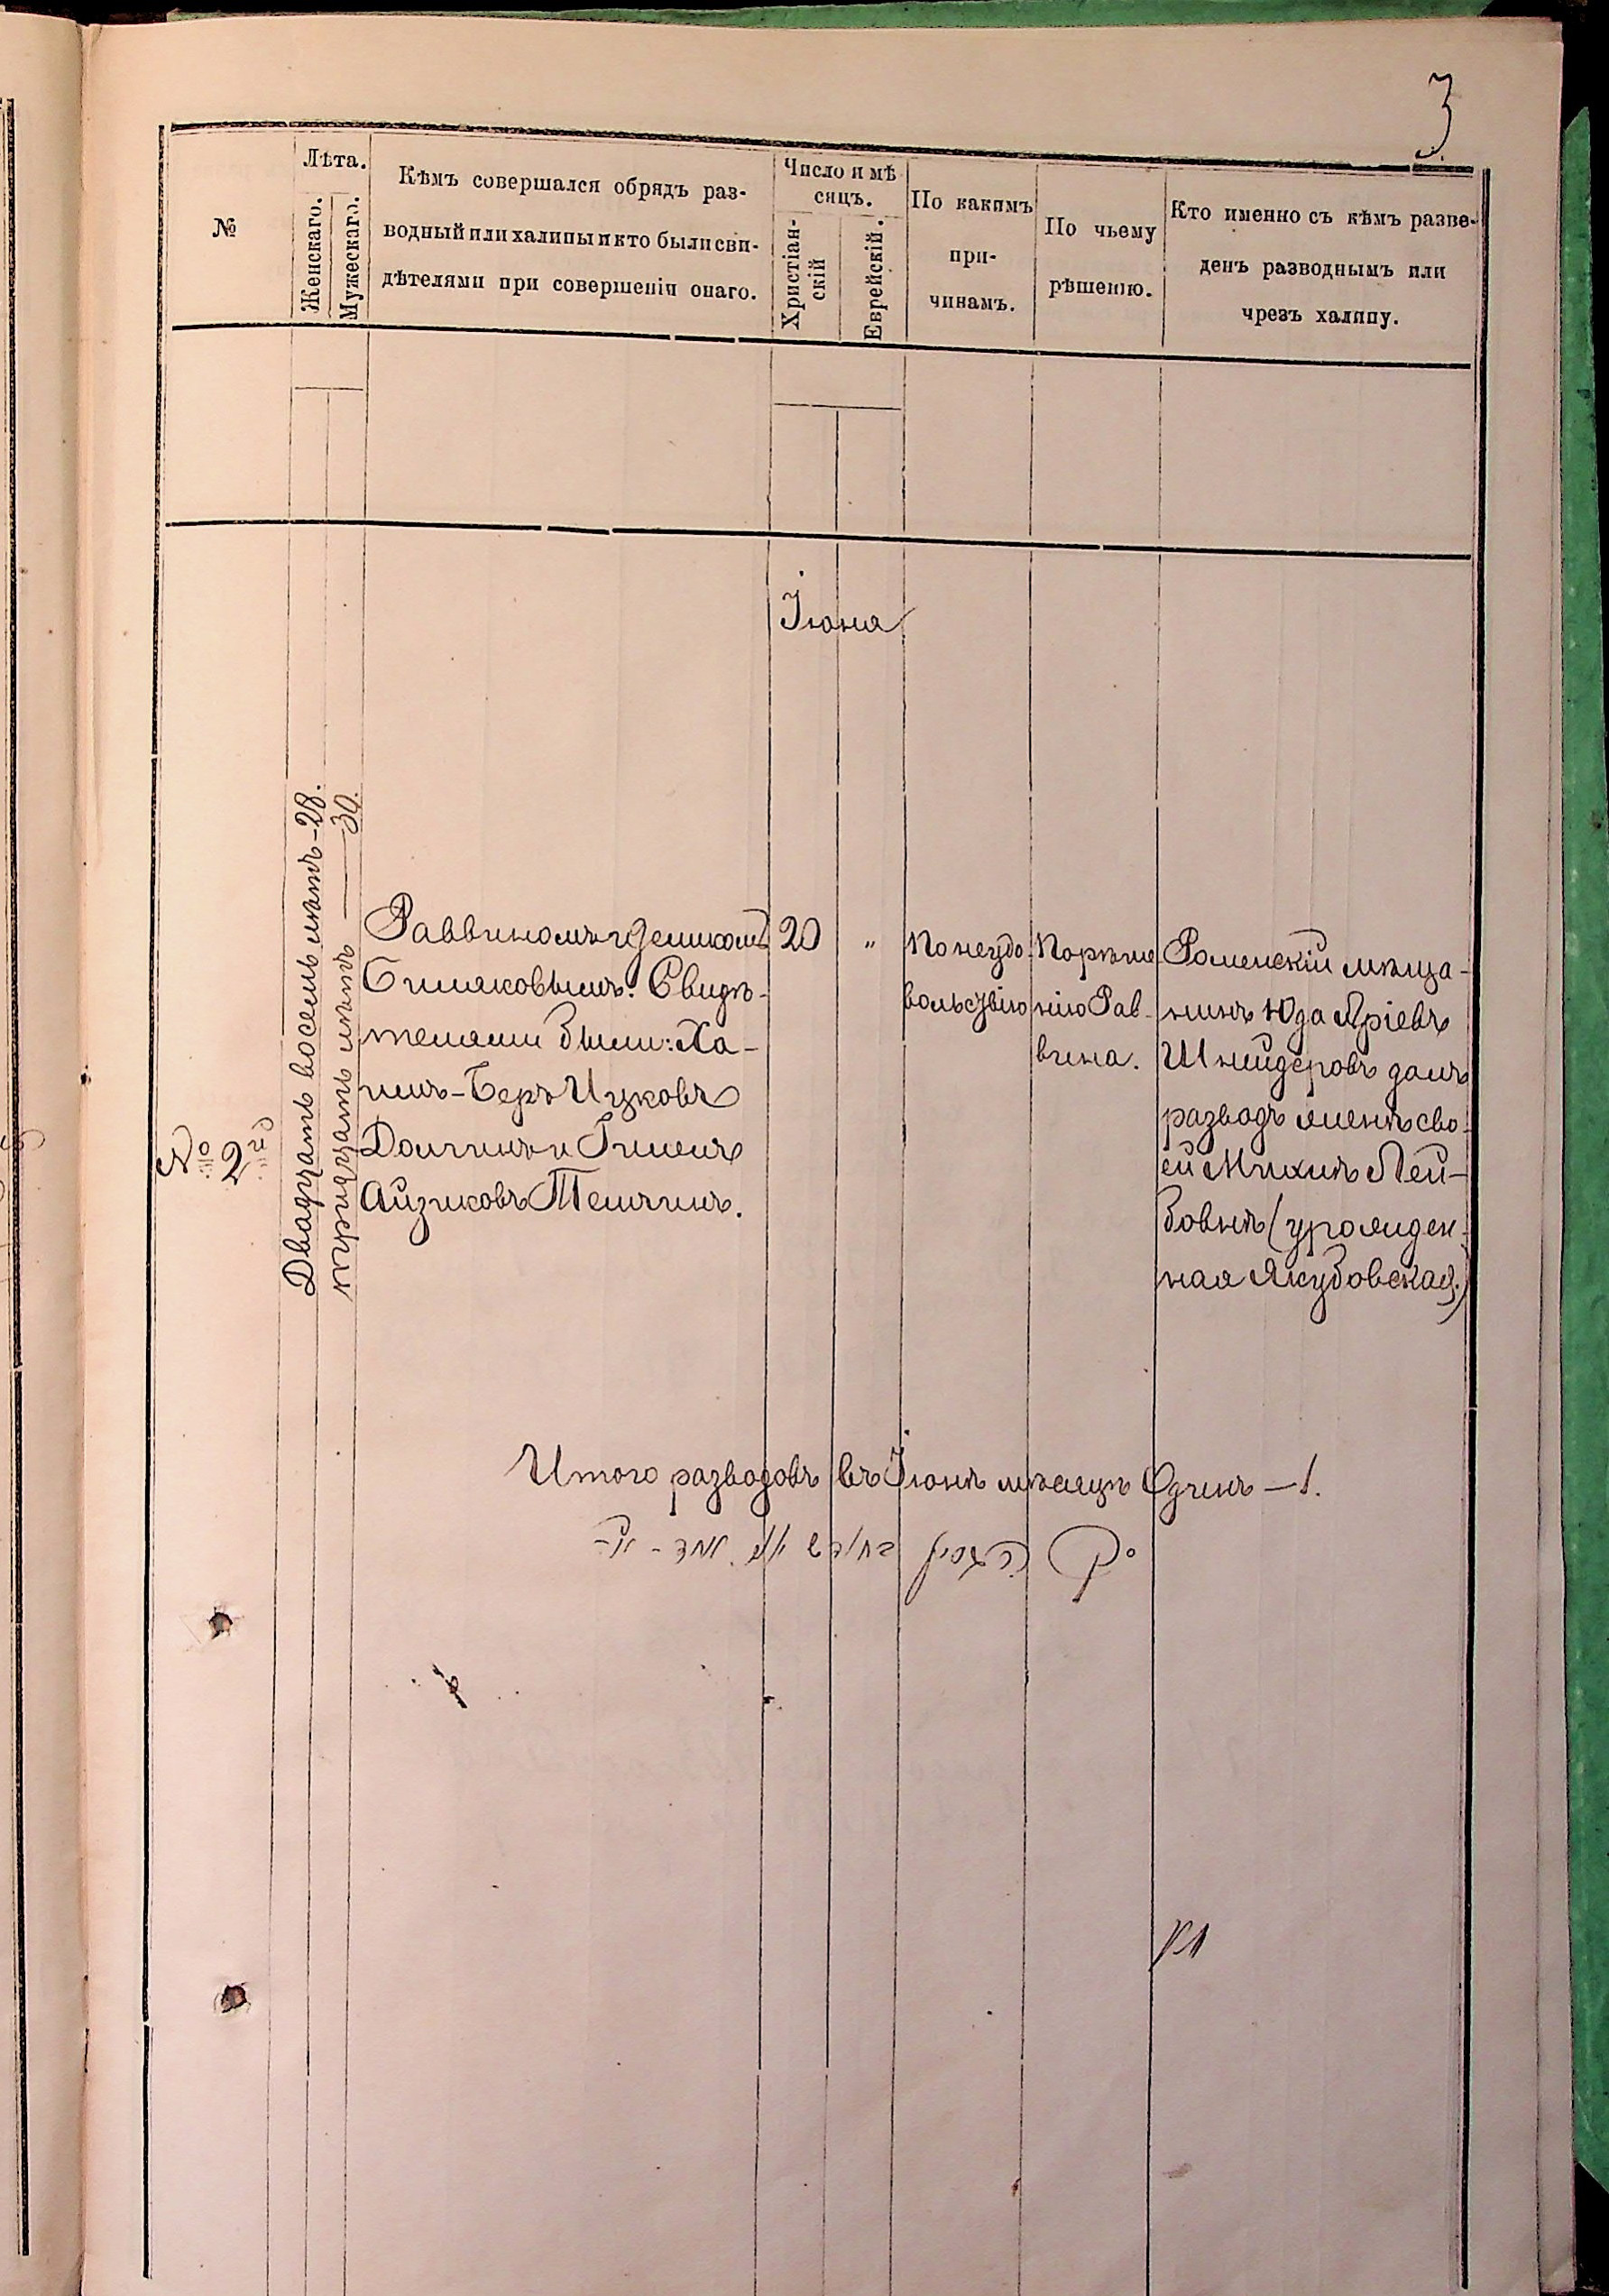 3
№
Лѣта.
Женскаго.
Мужескаго.
Кѣмъ совершался обрядъ раз-
водный или халипы и кто были сви-
дѣтелями при совершеніи онаго.
Число и мѣ
сяцъ.
Христіан-
скій
Еврейскій.
По какимъ
при-
чинамъ.
По чьему
рѣшенію.
Кто именно съ кѣмъ разве-
денъ разводнымъ или
чрезъ халипу.
Іюня
№ 2й
Двадцать восемь лѣтъ - 28.
тридцать лѣтъ — 30.
Раввиномъ
Свидѣ-
телями были: Ха-
имъ-Беръ Ицковъ
Долгинъ и Гилель
Айзиковъ
20
"
По неудо-
вольствію
По рѣше
нію Рав-
вина.
Роменскій мѣща-
нинъ Юда Аріевъ
Шнейдеровъ далъ
разводъ женѣ сво-
ей Михлѣ Лей-
бовнѣ (урожден-
ная Якубовская.)
Итого разводовъ въ Іюнѣ мѣсяцѣ Одинъ — 1.